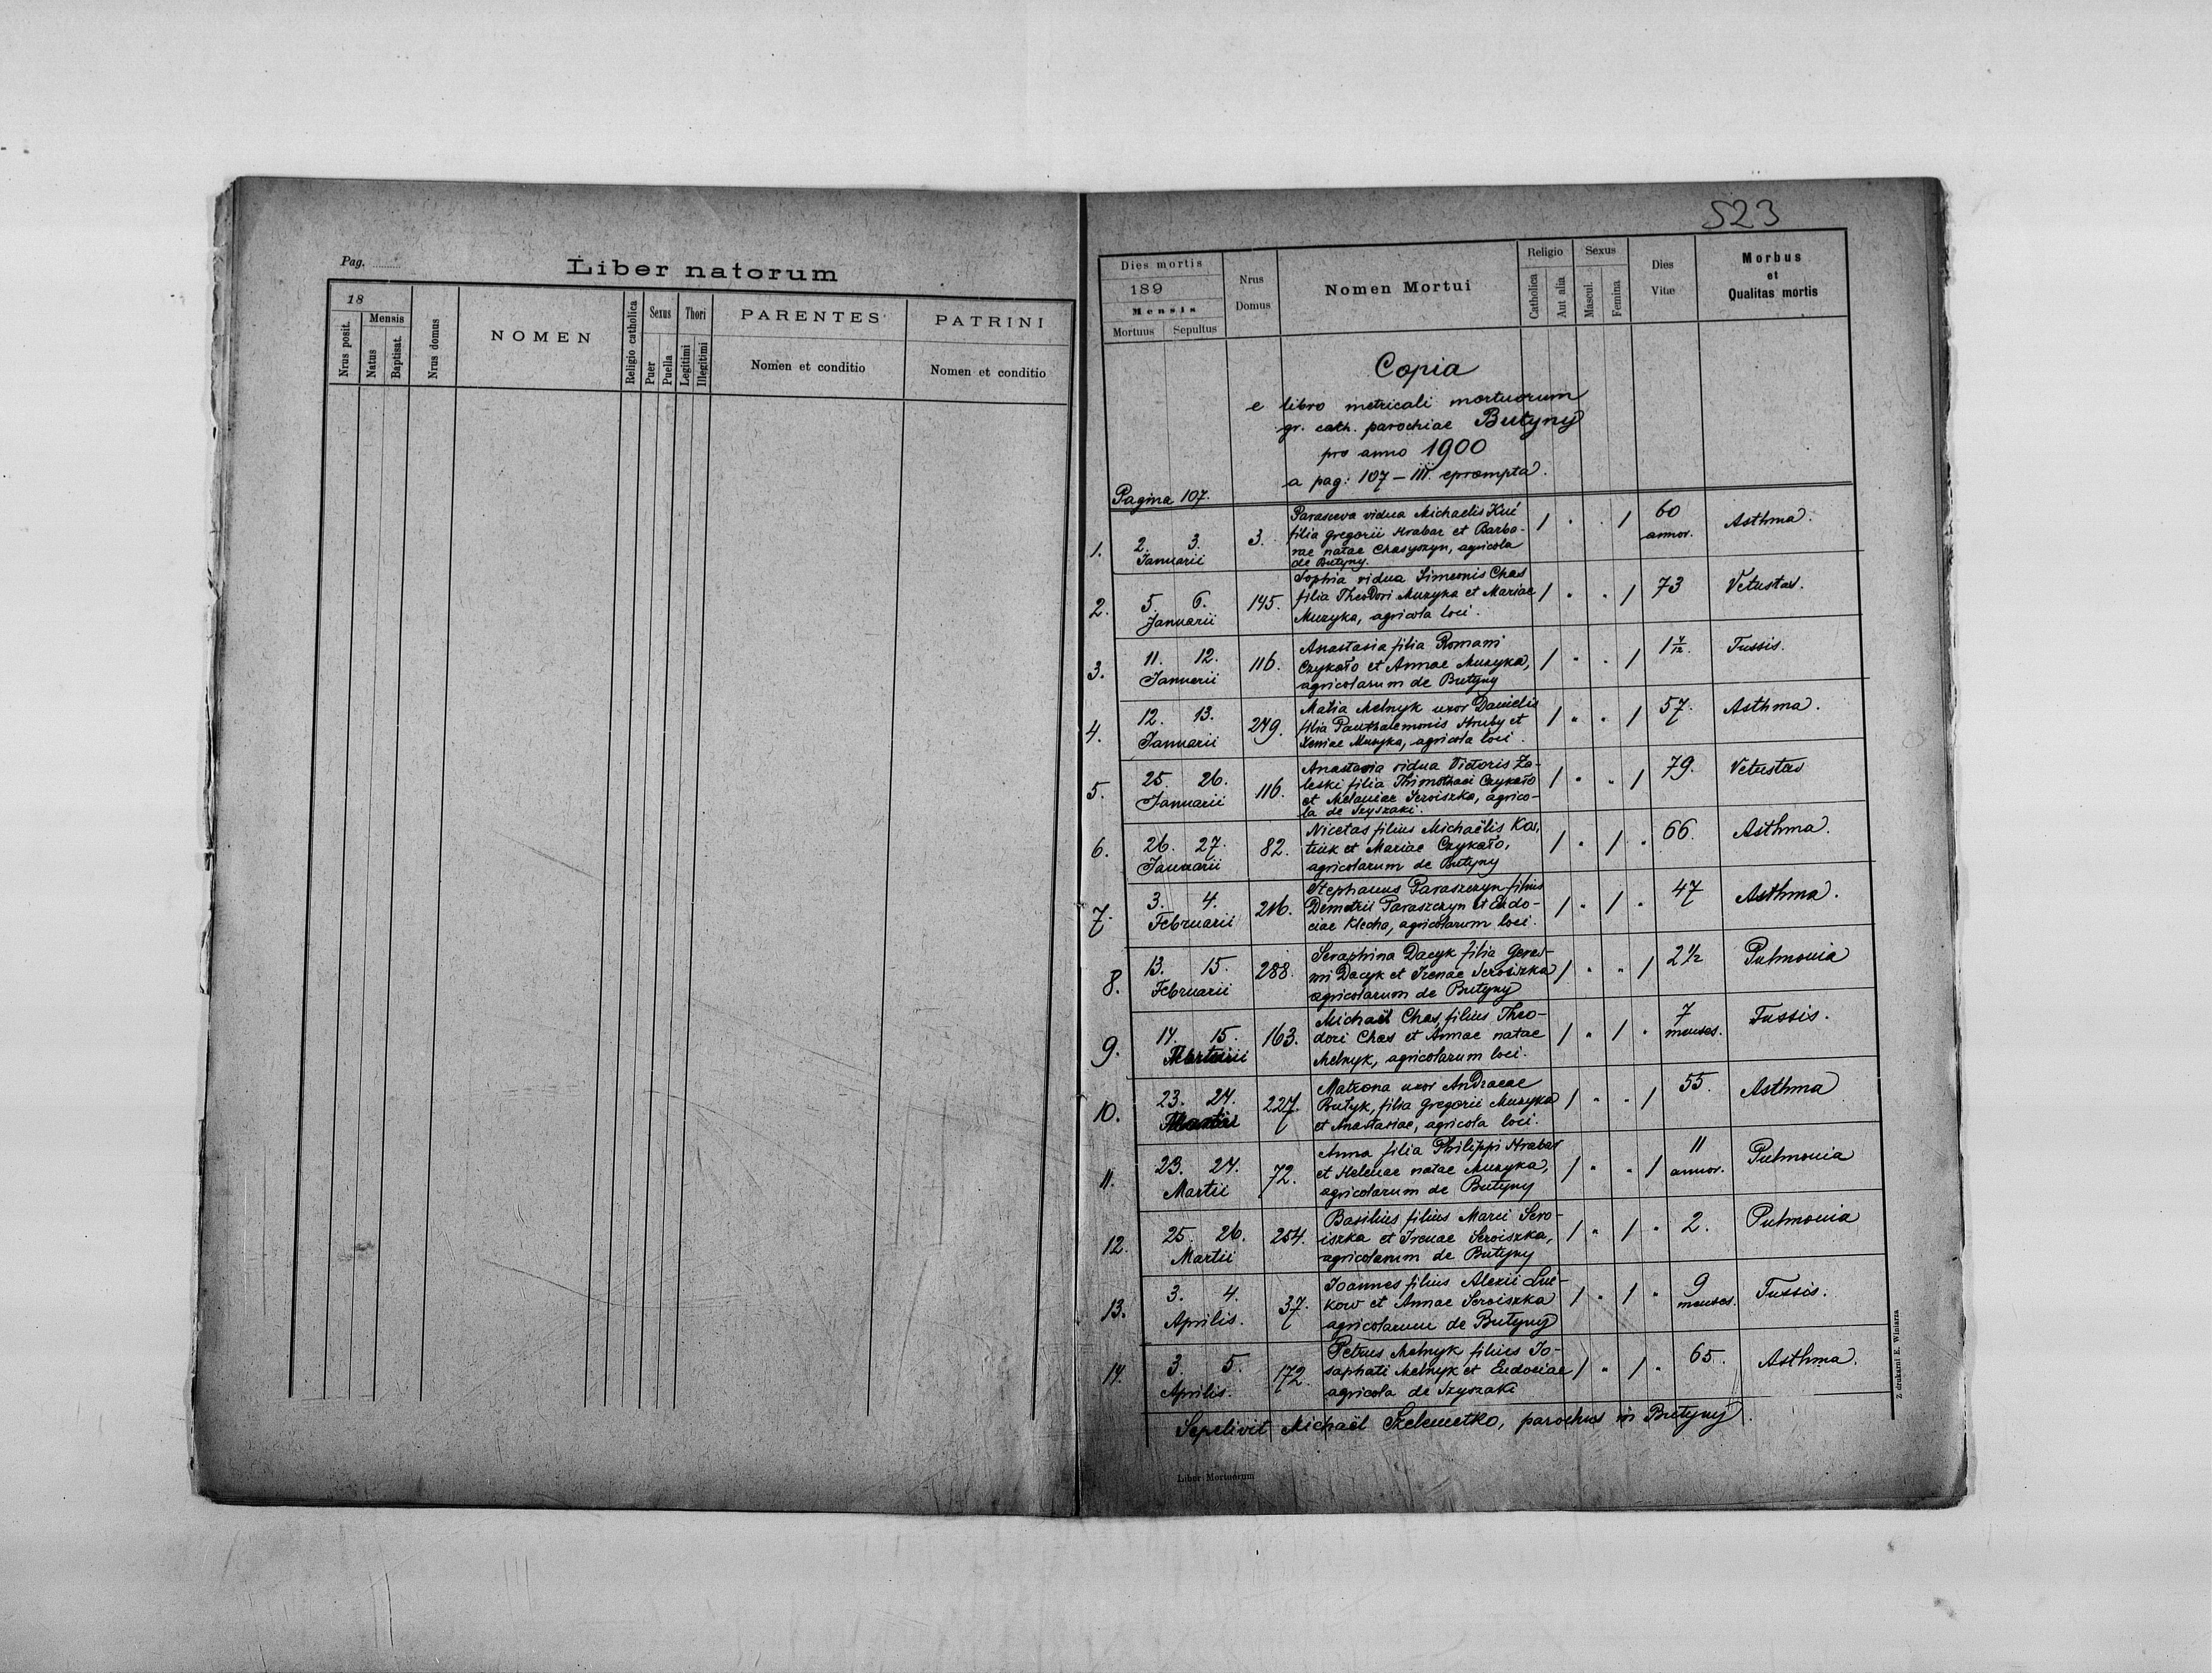 523
Pag.
Liber natorum
18
Mensis
Nrus posit.
Natus
Baptisat.
Nrus domus
NOMEN
Religio catholica
Sexus
Puer
Puella
Thori
Legitimi
Illegitimi
PARENTES
Nomen et conditio
PATRINI
Nomen et conditio
Dies mortis
189
Mensis
Mortuus Sepultus
Nrus
Domus
Nomen Mortui
Religio
Catholica
Aut alia
Sexus
Mascul.
Femina
Dies
Vitæ
Morbus
et
Qualitas mortis
Copia
e libro metricali mortuorum
gr. cath. parochiae Butyny
pro anno 1900
a pag: 107 – III. eprompta.
Pagina 107.
1. 2. 3. Januarii 3.
Parasceva vidua Michaelis Kuć
filia Gregorii Hrabar et Barba-
rae natae Chasyszyn, agricola
de Butyny.
/ . . / 60 annor. Asthma.
2. 5. 6. Januarii 145.
Sophia vidua Simeonis Chas
filia Theodori Muzyka et Mariae
Muzyka, agricola loci.
/ . . / 73 Vetustas.
3. 11. 12. Januarii 116.
Anastasia filia Romani
Czykało et Annae Muzyka,
agricolarum de Butyny
/ . . / Tussis.
4. 12. 13. Januarii 279.
Maria Melnyk uxor Danielis
filia Panthalemonis Hruby et
Xeniae Muzyka, agricola loci.
/ . . / 57. Asthma.
5. 25. 26. Januarii 116.
Anastasia vidua Victoris Za-
leski filia Thimothaei Czykało
et Melaniae Seroiszka, agrico-
la de Szyszaki.
/ . . / 79. Vetustas
6. 26. 27. Januarii 82.
Nicetas filius Michaëlis Kos-
tiuk et Mariae Czykało,
agricolarum de Butyny
/ . / . 66. Asthma.
7. 3. 4. Februarii 216.
Stephanus Paraszczyn filius
Demetrii Paraszczyn et Eudo-
ciae Klecha, agricolarum loci.
/ . / . 47 Asthma.
8. 13. 15. Februarii 288.
Seraphina Dacyk filia
Dacyk et Irenae Seroiszka
agricolarum de Butyny
/ . . / 2 1/2 Pulmonia
9. 14. 15. 163.
Michaël Chas filius Theo-
dori Chas et Annae natae
Melnyk, agricolarum loci.
/ . / . 7 menses. Tussis.
10. 23. 24. 227.
Matrona uxor Andreae
Butyk, filia Gregorii Muzyka
et Anastasiae, agricola loci.
/ . . / 55. Asthma
11. 23. 24. Martii 72.
Anna filia Philippi Hrabar
et Helenae natae Muzyka,
agricolarum de Butyny
/ . . / 11 annor. Pulmonia
12. 25. 26. Martii 254.
Basilius filius Marci Sero-
iszka et Irenae Seroiszka,
agricolarum de Butyny
/ . / . 2. Pulmonia
13. 3. 4. Aprilis. 37.
Joannes filius Alexii Luć-
kow et Annae Seroiszka
agricolarum de Butyny
/ . / . 9 menses. Tussis.
14. 3. 5. Aprilis. 172.
Petrus Melnyk filius Jo-
saphati Melnyk et Eudociae
agricola de Szyszaki
/ . / . 65. Asthma.
Sepelivit Michaël Szelemetko, parochus in Butyny.
Liber Mortuorum
Z drukarni E. Winiarza